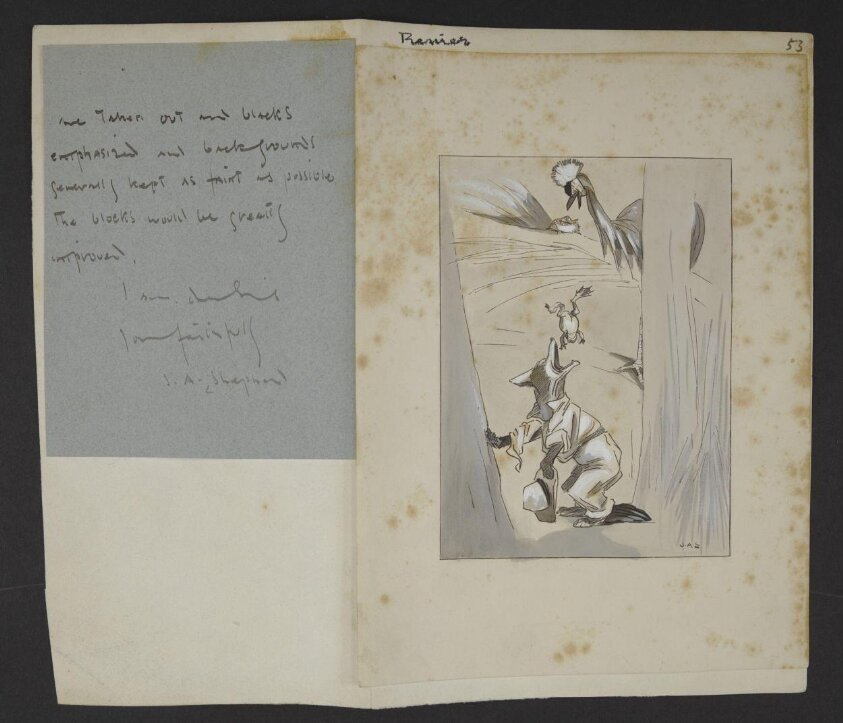 Renier
53
are taken out and blacks
emphasized and backgrounds
generally kept as faint as possible
the blocks would be greatly
improved.
I am, dear Sir
yours faithfully
J. A. Shepherd
J.A.S